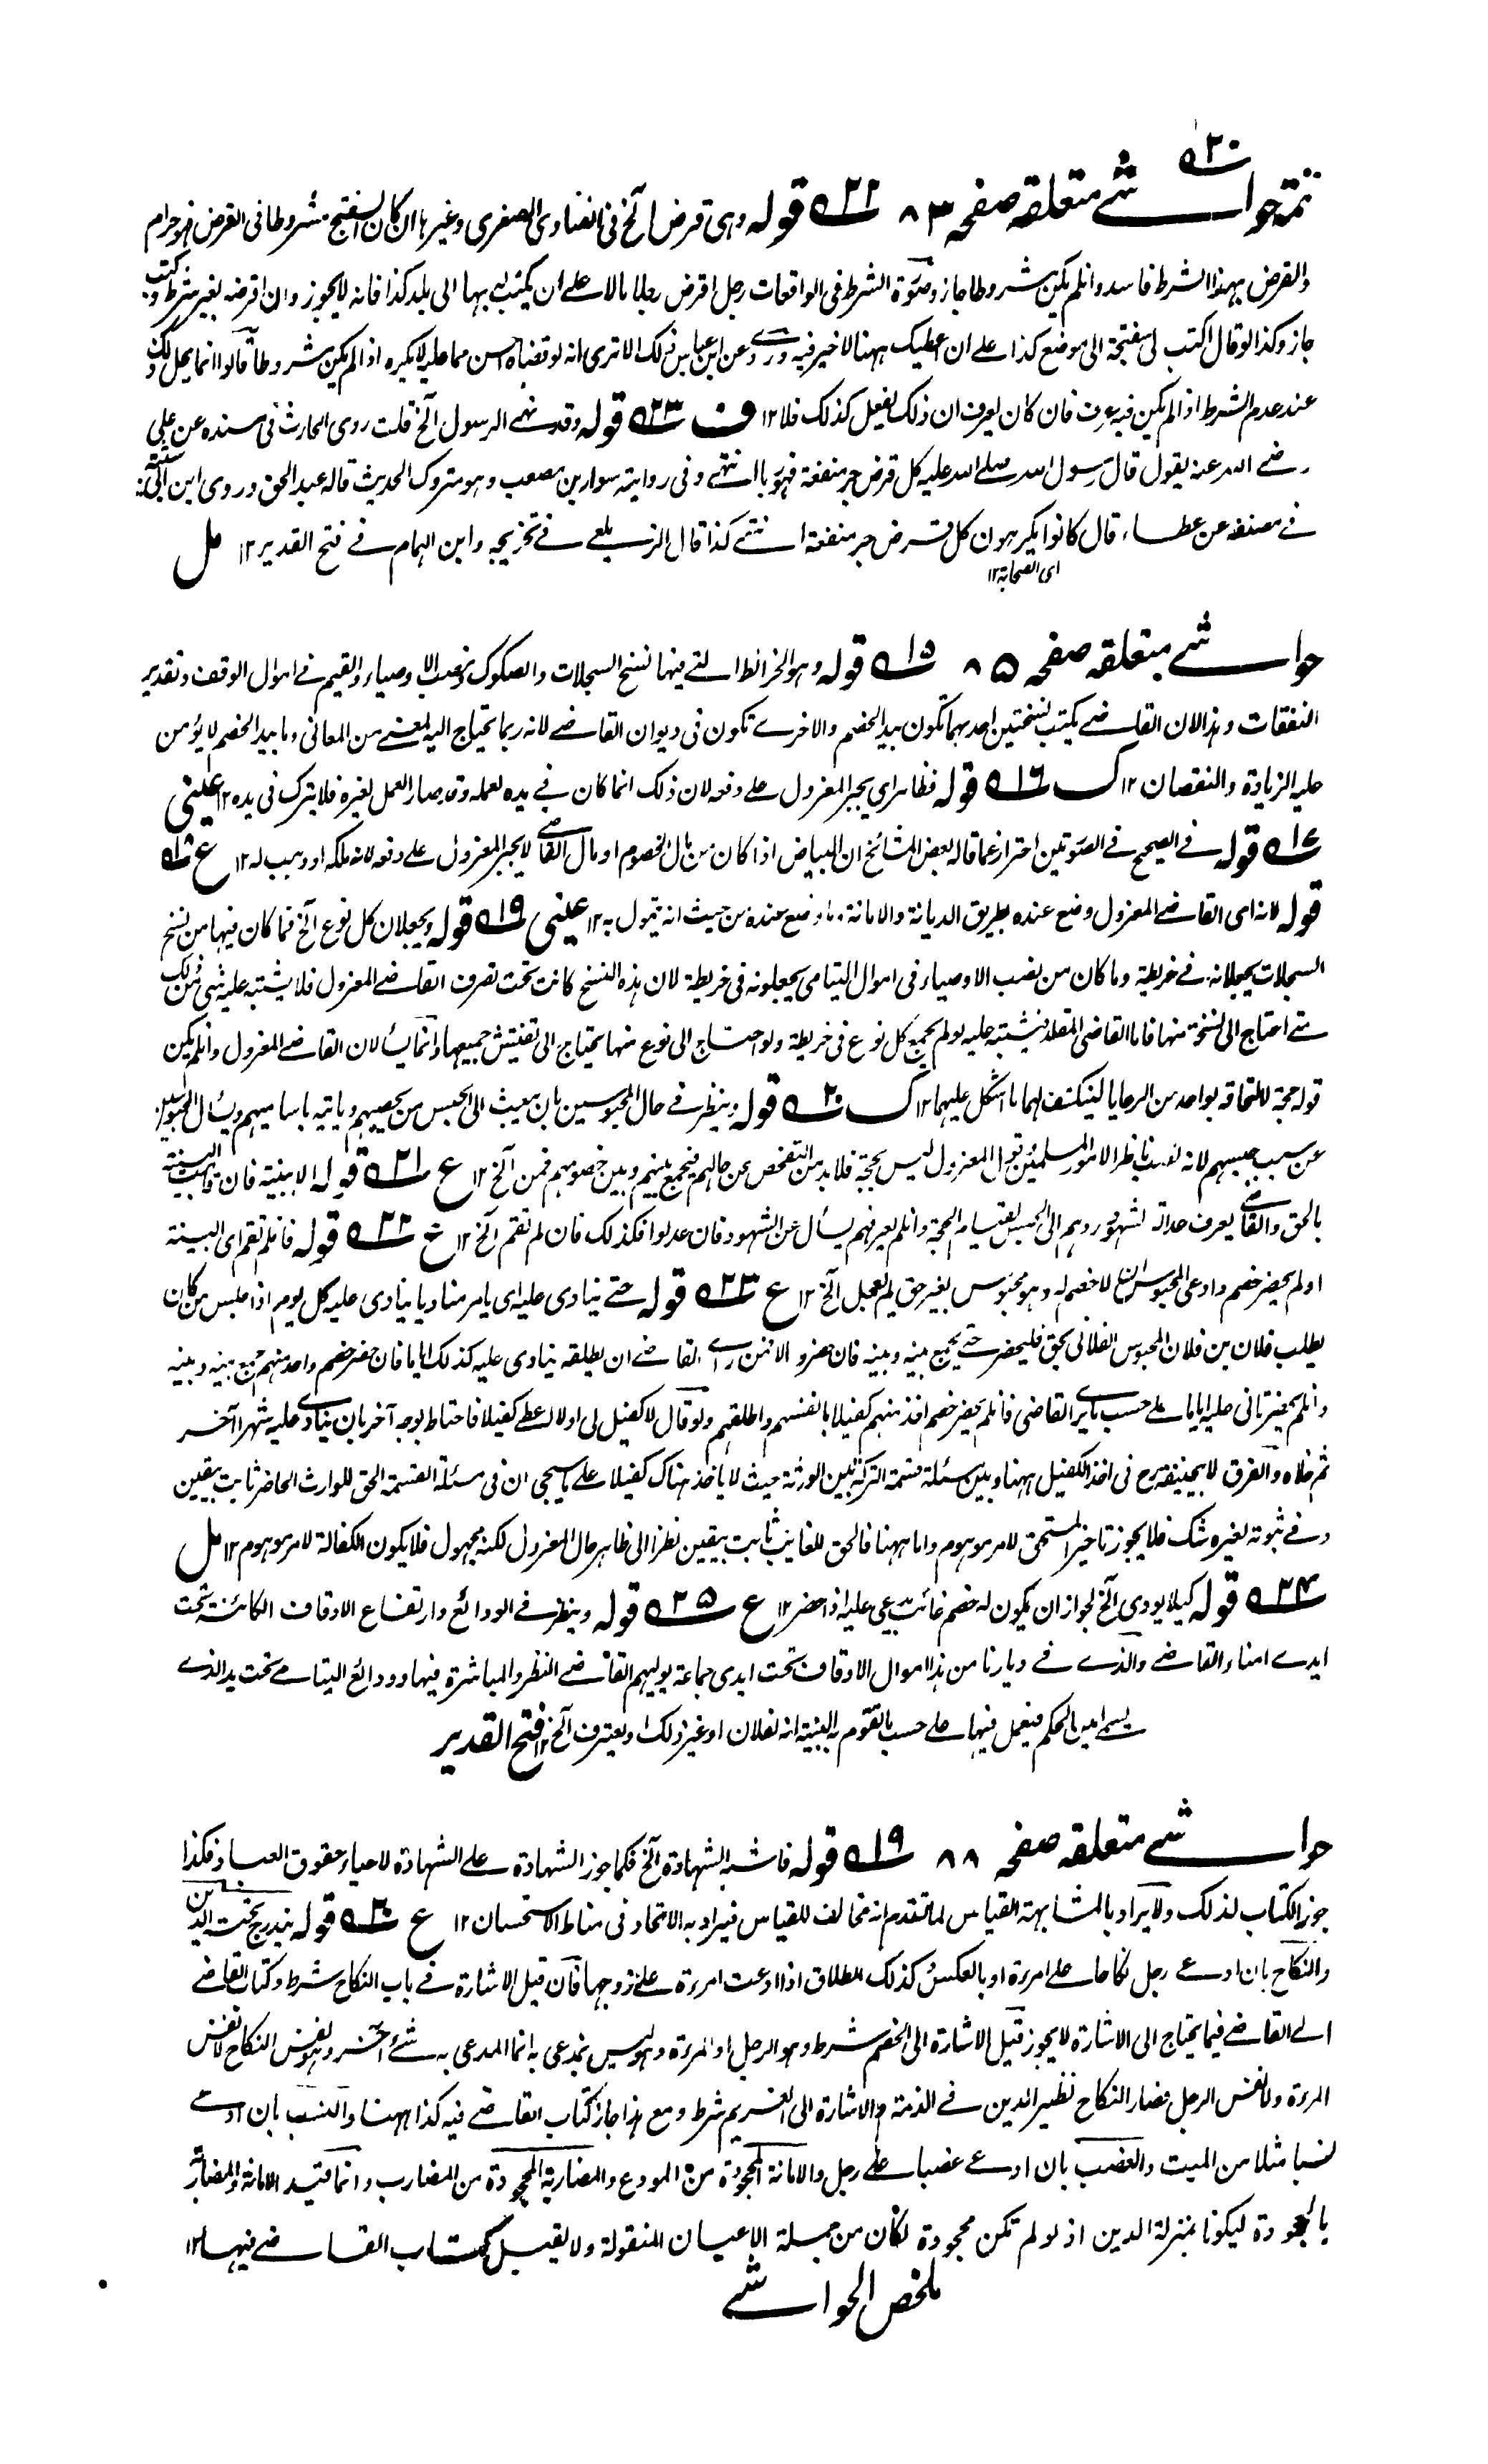 ۲۰
تتمه حواشے متعلقه صفحه ۸۳ ۲۲ قوله وہی قرض آلخ فی الفتاوی الصغری وغیرہا ان کان السفتج مشروطا فی القرض فہو حرام
والقرض بہذا الشرط فاسد وانلم یکن مشروطا جاز وصورة الشرط فی الواقعات رجل اقرض رجلا مالا علے ان یکتب له بہا الی بلد کذا فانه لایجوز وان اقرضه بغیر شرط وکتب
جاز وکذا لو قال اکتب لی سفتجة الی موضع کذا علے ان اعطیک ہہنا لا خیر فیه وروے عن ابن عباس ذلک الا تری انه لو قضاه احسن مما علیه لایکره اذا لم یکن مشروطا قالوا انما یحل ذلک
عند عدم الشرط اذا لم یکن فیه عرف فان کان یعرف ان ذلک یفعل کذلک فلا ۱۲ ف ۲۳ قوله وقد نہے الرسول آلخ قلت روی الحارث فی مسنده عن علی
رضے الله عنه یقول قال رسول الله صلے الله علیه کل قرض جر منفعة فہو ربا انتہے وفی روایته سوار بن مصعب وہو متروک الحدیث قاله عبد الحق وروی ابن ابی شیبة
فے مصنفه عن عطاء قال کانوا یکرہون کل قرض جر منفعة انتہے کذا قال الزیلعے فے تخریجه وابن الہمام فے فتح القدیر ۱۲ مل
ای الصحابة ۱۲
حواشے متعلقه صفحه ۸۵ ۱۵ قوله وہو الخرائط التے فیہا نسخ السجلات والصکوک ونصب الاوصیاء والقیم فے اموال الوقف وتقدیر
النفقات وہذا لان القاضے یکتب نسختین احدہما تکون بید الخصم والاخرے تکون فی دیوان القاضے لانه ربما یحتاج الیه لمعنے من المعانی وما بید الخصم لا یؤمن
علیه الزیادة والنقصان ۱۲ ک ۱۶ قوله فظاہر ای یجبر المعزول علے دفعه لان ذلک انما کان فے یده لعمله وقد صار العمل لغیره فلا یترک فی یده ۱۲ عینی
۱۷ قوله فے الصحیح فے الصورتین احتراز عما قاله بعض المشائخ ان البیاض اذا کان من مال الخصوم او مال القاضے لایجبر المعزول علے دفعه لانه ملکه او وہب له ۱۲ ع ۱۸
قوله لانه ای القاضے المعزول وضع عنده بطریق الدیانة والامانة وما وضع عنده من حیث انه یتمول به ۱۲ عینی ۱۹ قوله ویجعلان کل نوع آلخ فما کان فیہا من نسخ
السجلات یجعلانه فے خریطة وما کان من نصب الاوصیاء فی اموال الیتامی یجعلونه فی خریطة لان ہذه النسخ کانت تحت تصرف القاضے المعزول فلا یشتبه علیه شی من ذلک
متے احتاج الی نسخة منہا فاما القاضی المقلد فیشتبه علیه لو لم یجمع کل نوع فی خریطة ولو احتاج الی نوع منہا یحتاج الی تفتیش جمیعہا وانما یسألان القاضے المعزول وانلم یکن
قوله حجة لالتحاقه بواحد من الرعایا لینکشف لہما ما اشکل علیہما ۱۲ ک ۲۰ قوله وینظر فے حال المحبوسین بان یبعث الی الحبس من یحصیہم ویاتیه باسامیہم ویسأل المحبوسین
عن سبب حبسہم لانه نصب ناظرا لامور المسلمین وقول المعزول لیس بحجة فلا بد من التفحص عن حالہم فیجمع بینہم وبین خصومہم فمن آلخ ۱۲ ع ۲۱ قوله الا ببینة فان قامت البینة
بالحق والقاضے یعرف عدالة الشہود ردہم الی الحبس لقیام الحجة وانلم یعرفہم یسأل عن الشہود فان عدلوا فکذلک فان لم تقم آلخ ۱۲ ع ۲۲ قوله فانلم تقم ای البینة
اولم یحضر خصم وادعی المحبوس ان لا خصم له وہو محبوس بغیر حق لم یعجل آلخ ۱۲ ع ۲۳ قوله حتے ینادی علیه ای یامر منادیا ینادی علیه کل یوم اذا جلس من کان
یطلب فلان بن فلان المحبوس الفلانی بحق فلیحضر حتے یجمع بینه وبینه فان حضر والا فمن راے القاضے ان یطلقه ینادی علیه کذلک ایاما فان حضر خصم واحد منہم جمع بینه وبینه
وانلم یحضر تانی علیه ایاما علے حسب ما یرے القاضی فانلم یحضر خصم اخذ منہم کفیلا بانفسہم واطلقہم ولو قال لا کفیل لی اولا اعطے کفیلا فاحتاط بوجه آخر بان ینادے علیه شہرا آخر
ثم خلاه والفرق لابیحنیفة رح فی اخذ الکفیل ہہنا وبین مسئلة قسمة الترکة بین الورثة حیث لا یأخذ ہناک کفیلا علے ما سیجی ان فی مسئلة القسمة الحق للوارث الحاضر ثابت بیقین
وفے ثبوته لغیره شک فلا یجوز تاخیر المستحق لامر موہوم واما ہہنا فالحق للغایب ثابت بیقین نظرا الی ظاہر حال المعزول لکنه مجہول فلا یکون الکفالة لامر موہوم ۱۲ مل
۲۴ قوله کیلا یودی آلخ لجواز ان یکون له خصم غائب یدعی علیه اذا حضر ۱۲ ع ۲۵ قوله وینظر فے الودائع وارتفاع الاوقاف الکائنة تحت
ایدے امناء القاضے والذے فے دیارنا من ہذا اموال الاوقاف تحت ایدی جماعة یولیہم القاضے النظر والمباشرة فیہا وودائع الیتامے تحت ید الذے
یسمے امین الحکم فیعمل فیہا علے حسب ما تقوم به البینة انه لفلان او غیر ذلک او یعترف آلخ ۱۲ فتح القدیر
حواشے متعلقه صفحه ۸۸ ۱۹ قوله فاشبه الشہادة آلخ فکما جوز الشہادة علے الشہادة لاحیاء حقوق العباد فکذا
جوز الکتاب لذلک ولا یراد بالمشابہة القیاس لما تقدم انه مخالف للقیاس فیراد به الاتحاد فی مناط الاستحسان ۱۲ ع ۲۰ قوله یندرج تحت الدین
والنکاح بان ادعے رجل نکاحا علے امرءة او بالعکس وکذلک الطلاق اذا ادعت امرءة علے زوجہا فان قیل الاشارة فے باب النکاح شرط وکتاب القاضے
الے القاضے فیما یحتاج الی الاشارة لا یجوز قیل الاشارة الی الخصم شرط وہو الرجل او المرءة وہو لیس بمدعی به انما المدعی به شئے آخر وہو نفس النکاح لا نفس
المرءة ولا نفس الرجل فصار النکاح نظیر الدین فے الذمة والاشارة الی الغریم شرط ومع ہذا جاز کتاب القاضے فیه کذا ہہنا والنسب بان ادعے
نسبا مثلا من المیت والغصب بان ادعے غصبا علے رجل والامانة المجحودة من المودع والمضاربة المجحودة من المضارب وانما قید الامانة والمضاربة
بالمجحودة لیکونا بمنزلة الدین اذ لو لم تکن مجحودة لکان من جملة الاعیان المنقولة ولا یقبل کتاب القاضے فیہا ۱۲
ملخص الحواشے